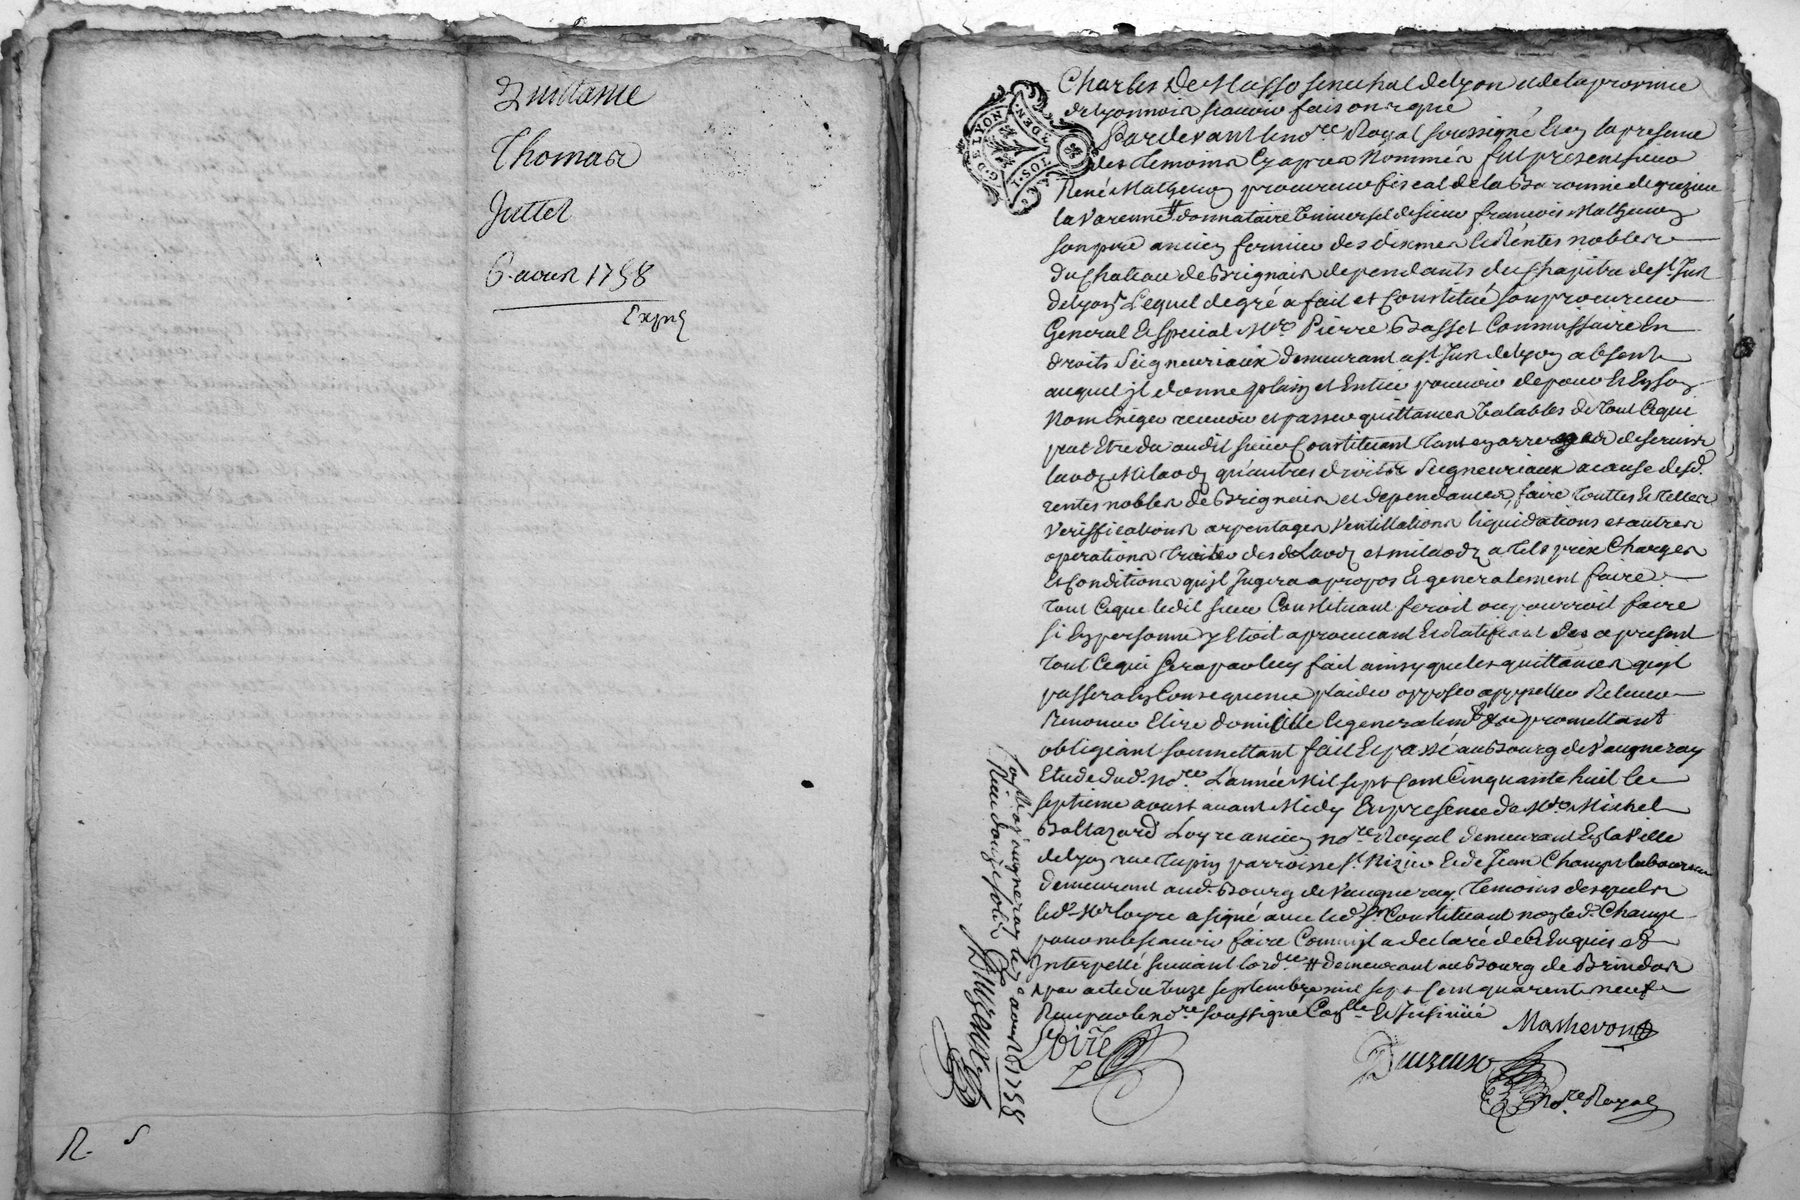 Quittance
Thomas
Juttet
6 aoust 1758
Expné
R. 5
G. DE LYON
DEN.
Charles De Masso senechal de lyon et de la province
de lyonnois scavoir faisons que
Pardevant le nore. Royal soussigné et en la presence
des temoins cy apres nommés fut present sieur
René Mathevon procureur fiscal de la Baronnie de grezieu
la varenne # donnataire universel de sieur francois Mathevon
son pere ancien fermier des dixmes et Rentes nobles
du chateau de Brignais dependants du chapitre de st. Just
de lyon Lequel de gré a fait et constitué son procureur
General et special Mre. Pierre Basset Commissaire En
droits seigneuriaux demeurant a st. Just de lyon absent
auquel il donne plain et Entier pouvoir de pour et En son
Nom Exiger recevoir et passer quittances valables de tout ce qui
peut Etre du audit sieur Constituant tant en arrerages de servis
laods Milaods qu'autres droits seigneuriaux a cause desd.
rentes nobles de Brignais et dependances, faire touttes et telles
veriffications arpentages ventillations liquidations et autres
operations traiter desd. Laods et milaods a tels prix Charges
et Conditions qu'il Jugera a propos Et generalement faire
tout ce que ledit sieur Constituant feroit ou pourroit faire
si En personne y Etoit aprouvant et Ratifiant des a present
tout ce qui sera par luy fait ainsy que les quittances qu'il
passera En Consequence plaider opposer appeller Relever
Renoncer Elire domicille et generalemt. &c promettant
obligeant soumettant fait Et passé au Bourg de Vaugneray
Etude dud. nore. L'année Mil sept Cent Cinquante huit le
septieme aoust avant Midy En presence de Mre. Michel
Baltazard Loyre ancien nore. Royal demeurant En la ville
de lyon rue tupin parroisse st. Nizier Et de Jean Champt laboureur
demeurant aud. Bourg de Vaugneray temoins desquels
led. Mr. loyre a signé avec led. sr. Constituant non led. Champt
pour ne le scavoir faire Comm'il a declaré de ce Enquis et
Interpellé suivant lordce. # demeurant au Bourg de Brindas
par acte du onze septembre mil sept Cent quarente neuf
Reçu par le nore. soussigné Conlle. Et Insinüé
Mathevon
Loire
Duzeux
nore. Royal
Conlle. a vaugneray le 7e. aoust 1758
Reçu douze sols
Duzeux